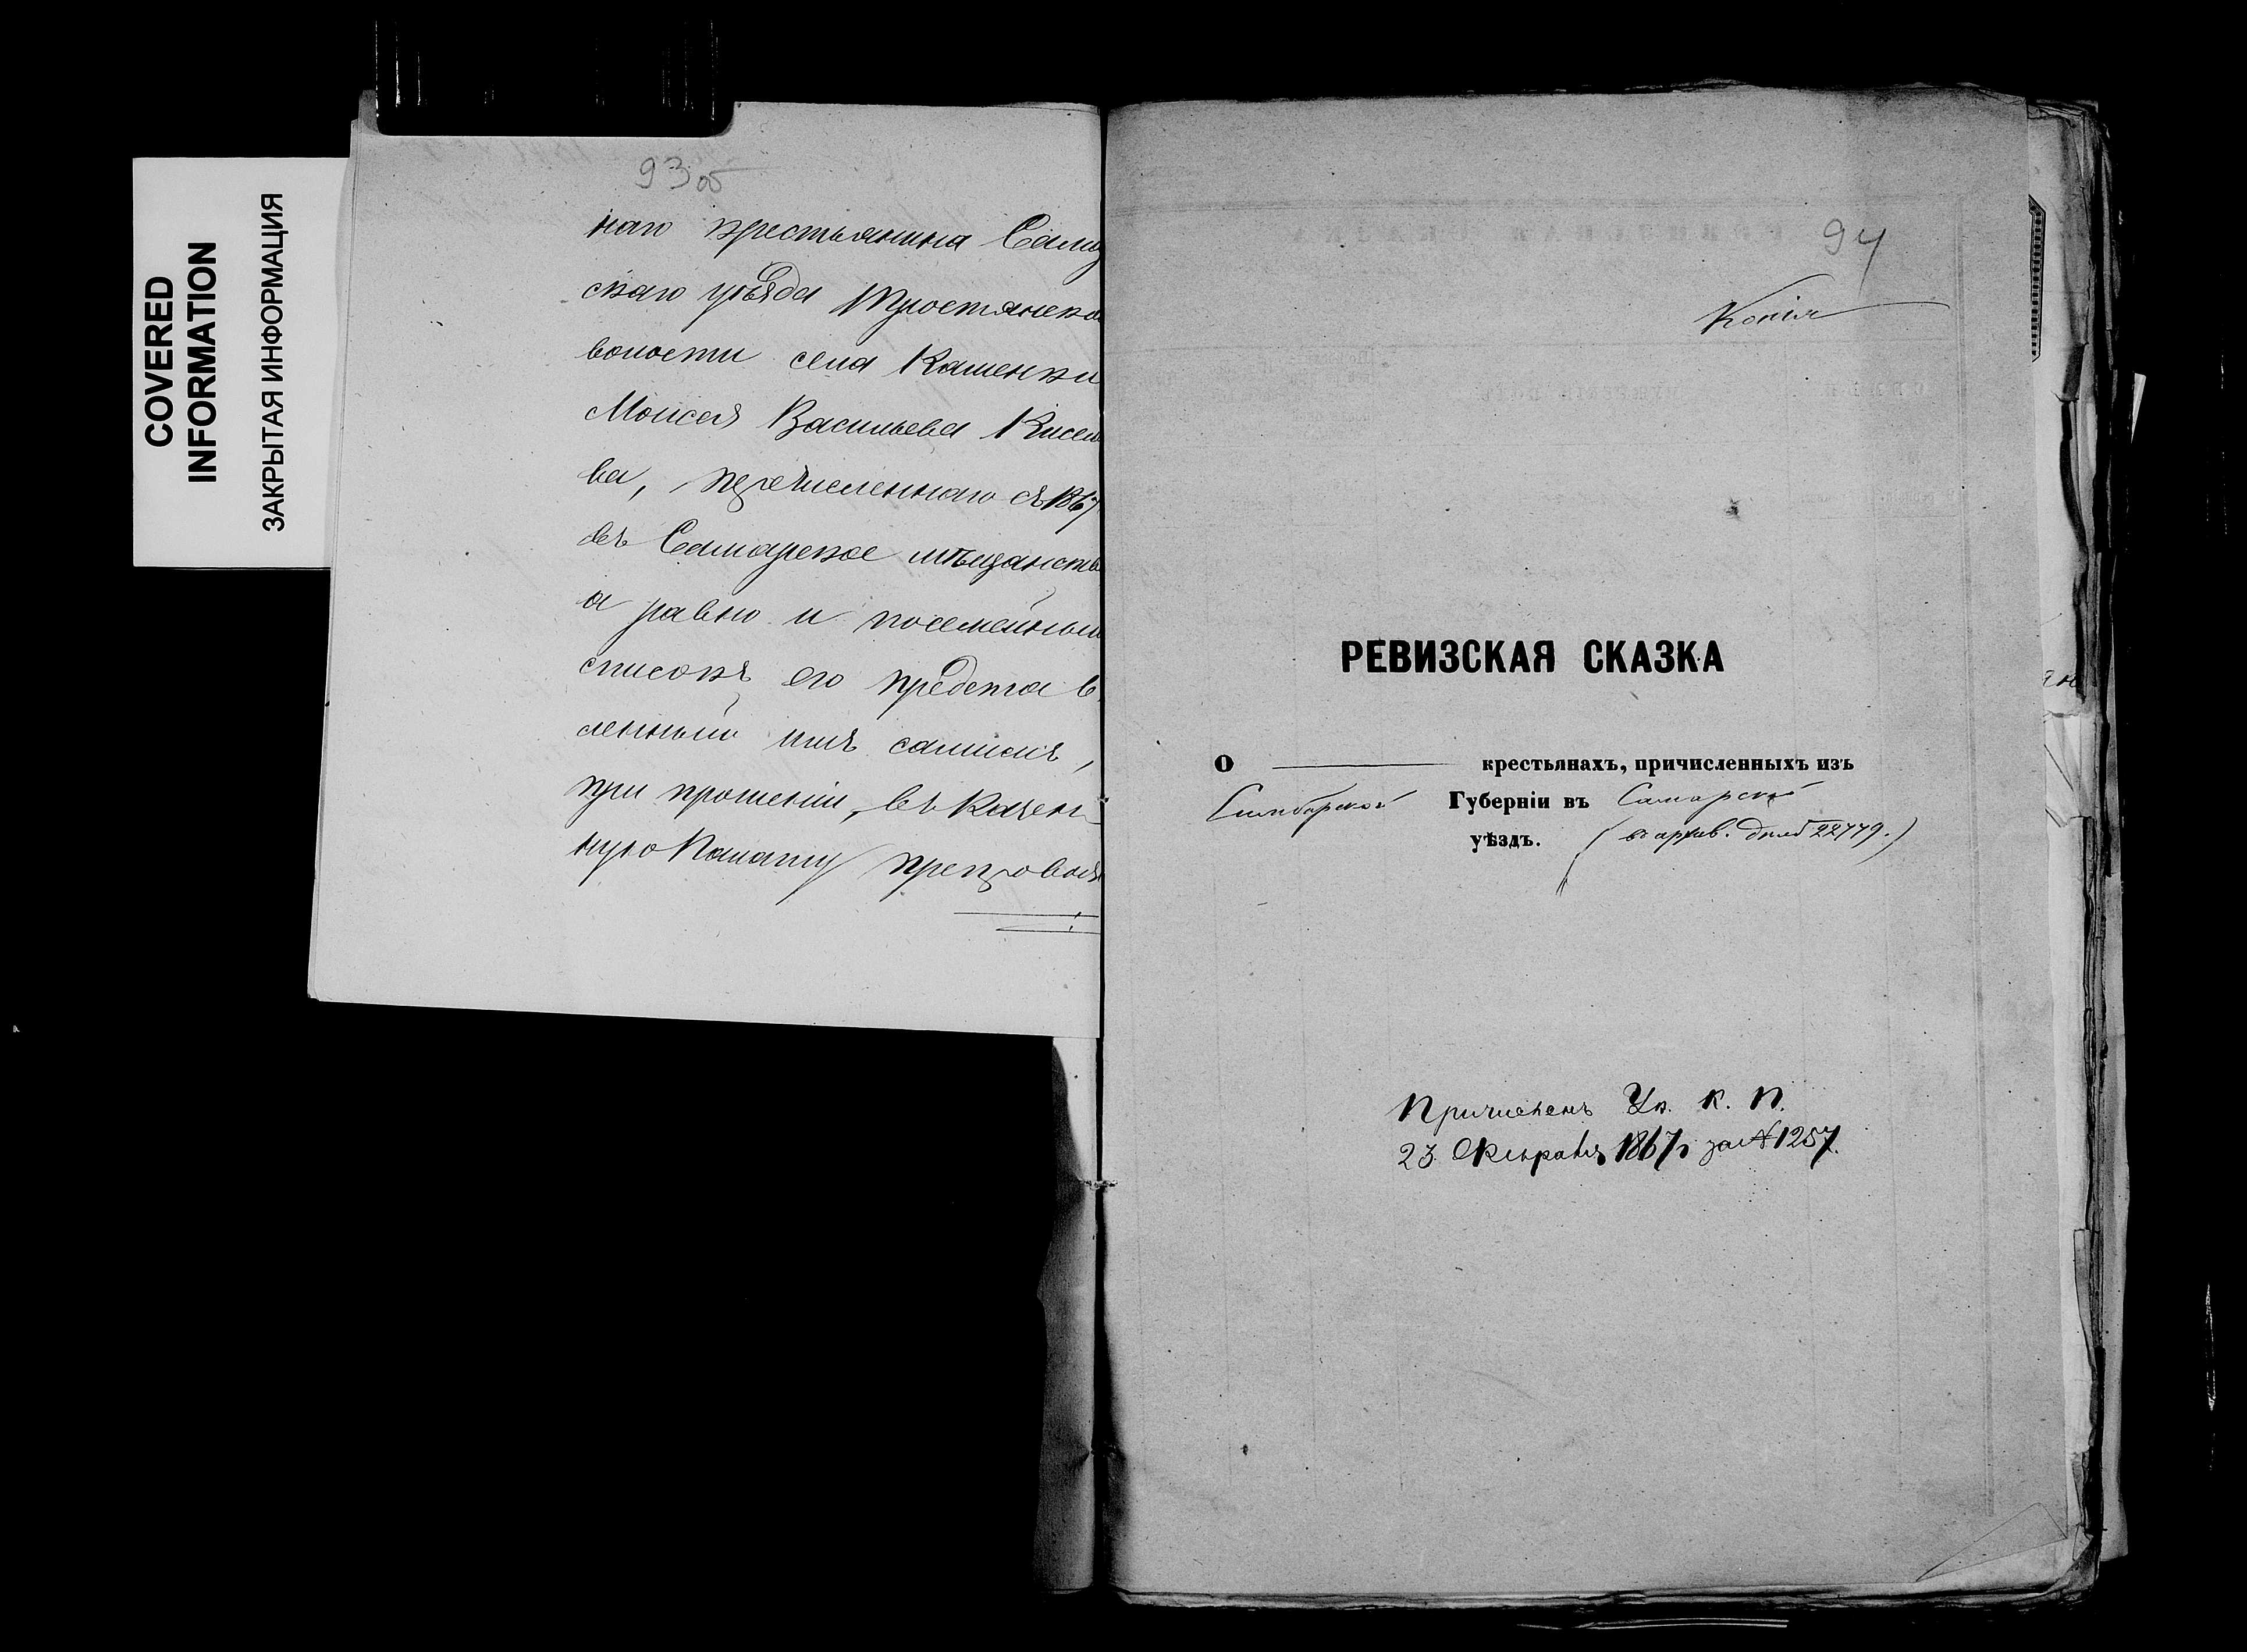 COVERED
INFORMATION
ЗАКРЫТАЯ ИНФОРМАЦИЯ
93об
наго крестьянина Самар
скаго уѣзда Тростянско
волости села Каменки
Моисея Васильева Кисел
ва, перечисленнаго съ 1867
въ Самарское мѣщанств
а равно и посемейный
списокъ его представ
ленный имъ самимъ,
при прошеніи, въ Казен-
ную Палату препровож
94
Копія
РЕВИЗСКАЯ СКАЗКА
О крестьянахъ, причисленныхъ изъ
Симбирской Губерніи въ Самарской
уѣздъ. (въ архив. дѣлѣ 22779.)
Причисленъ Ук. К. П.
23 Февраля 1867 г за № 1257.